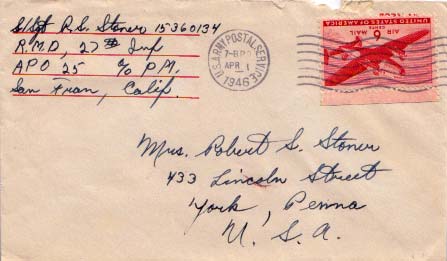 S/Sgt R.S. Stoner 15360134
R.M.D, 27th Inf
APO 25 c/o P.M.
San Fran, Calif.
U.S. ARMY POSTAL SERVICE
APR 1
1946
UNITED STATES OF AMERICA
6 CENTS
AIR MAIL
Mrs. Robert S. Stoner
433 Lincoln Street
York, Penna
U.S.A.